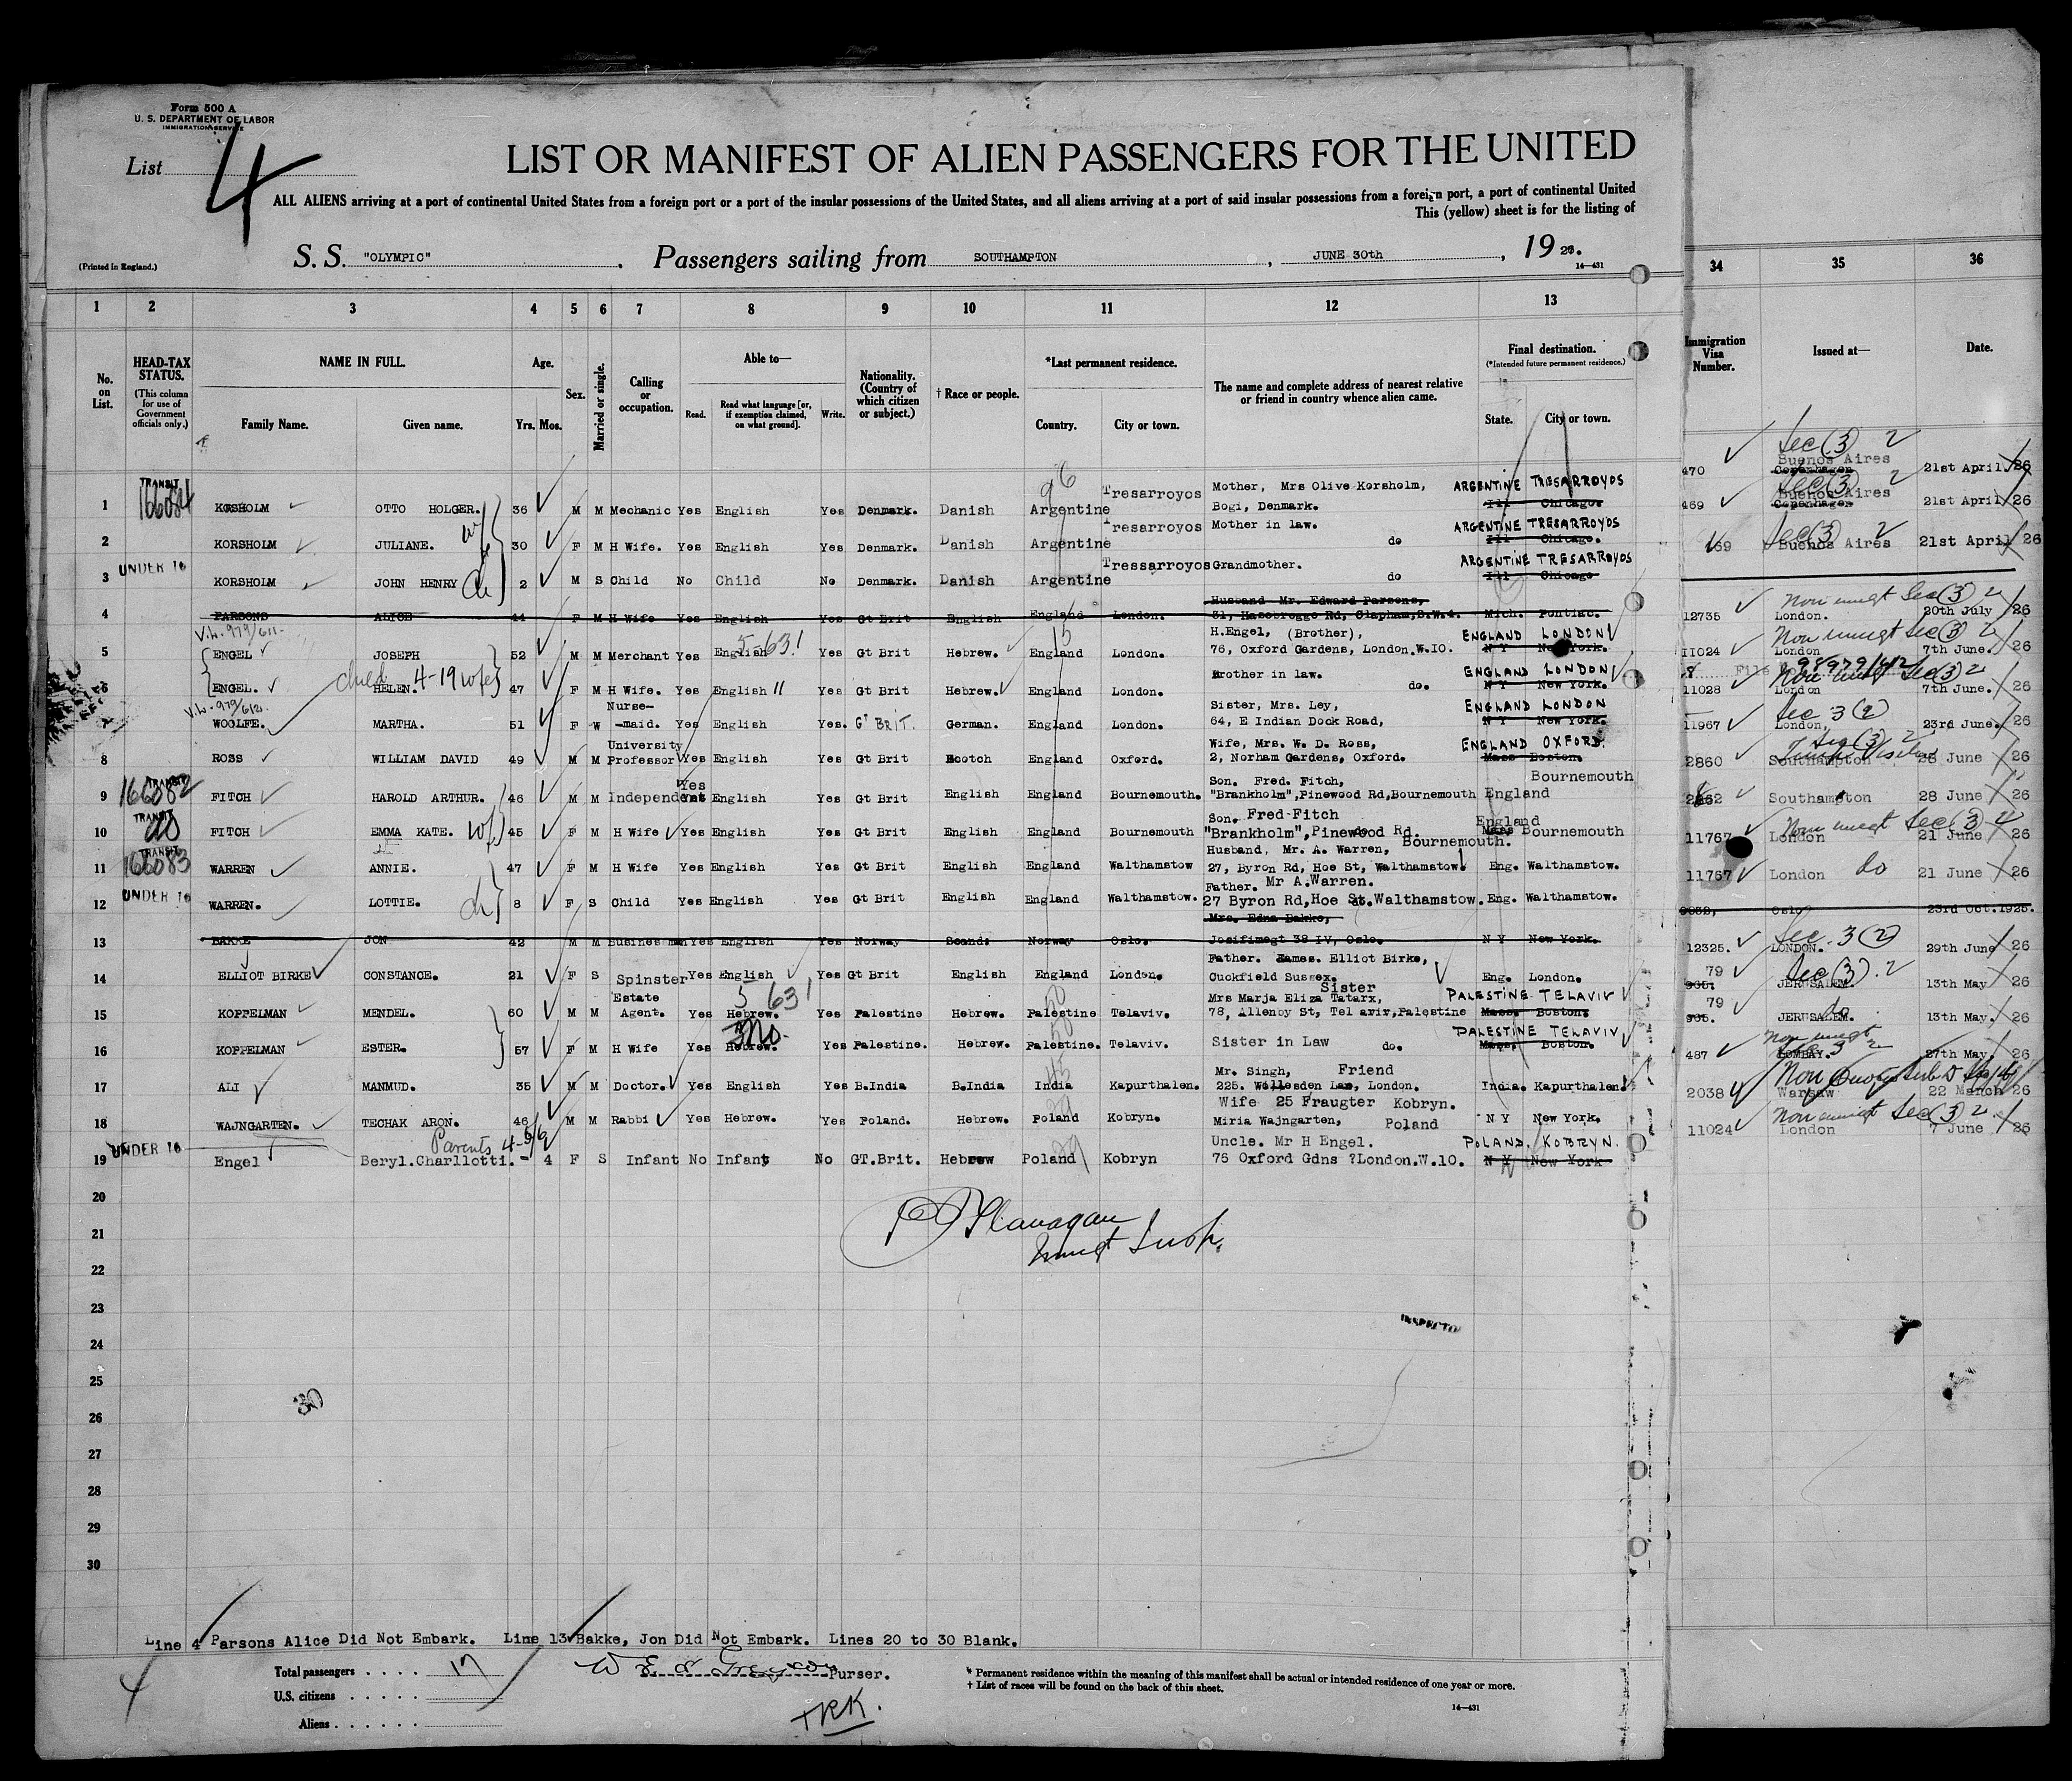 Form 500 A
U. S. DEPARTMENT OF LABOR
IMMIGRATION SERVICE
List 4
LIST OR MANIFEST OF ALIEN PASSENGERS FOR THE UNITED
ALL ALIENS arriving at a port of continental United States from a foreign port or a port of the insular possessions of the United States, and all aliens arriving at a port of said insular possessions from a foreign port, a port of continental United
This (yellow) sheet is for the listing of
(Printed in England.)
S. S. "OLYMPIC". Passengers sailing from SOUTHAMPTON, JUNE 30th, 1926.
14—431
1 2 3 4 5 6 7 8 9 10 11 12 13 34 35 36
No. on List.
HEAD-TAX STATUS. (This column for use of Government officials only.)
NAME IN FULL. Family Name. Given name.
Age. Yrs. Mos.
Sex.
Married or single.
Calling or occupation.
Able to— Read. Read what language [or, if exemption claimed, on what ground]. Write.
Nationality. (Country of which citizen or subject.)
† Race or people.
*Last permanent residence. Country. City or town.
The name and complete address of nearest relative or friend in country whence alien came.
Final destination. (*Intended future permanent residence.) State. City or town.
Immigration Visa Number.
Issued at—
Date.
470 Sec (3) 2 Buenos Aires Copenhagen 21st April. 26
TRANSIT 166084
1 KORSHOLM OTTO HOLGER. 36 M M Mechanic Yes English Yes Denmark. Danish Argentine Tresarroyos Mother, Mrs Olive Korsholm, Bogi, Denmark. ARGENTINE TRESARROYOS Ill Chicago.
469 Sec (3) 2 Buenos Aires Copenhagen 21st April 26
2 KORSHOLM JULIANE. wf 30 F M H Wife. Yes English Yes Denmark. Danish Argentine Tresarroyos Mother in law. do ARGENTINE TRESARROYOS Ill Chicago.
469 Sec (3) 2 Buenos Aires 21st April 26
UNDER 16
3 KORSHOLM JOHN HENRY ch 2 M S Child No Child No Denmark. Danish Argentine Tressarroyos Grandmother. do ARGENTINE TRESARROYOS Ill Chicago
4 PARSONS ALICE 44 F M H Wife Yes English Yes Gt Brit English England London. Husband Mr. Edward Parsons, 31, Hazebrogge Rd, Clapham, S.W.4. Mich. Pontiac.
12735 Non immgt Sec (3) 2 London. 20th July 26
V.L. 979/611
5 ENGEL JOSEPH 52 M M Merchant Yes English 5-631 Yes Gt Brit Hebrew. England London. H.Engel, (Brother), 76, Oxford Gardens, London.W.10. ENGLAND LONDON N Y New York.
11024 Non immgt Sec (3) 2 London 7th June. 26
6 ENGEL. HELEN. child 4-19 wife 47 F M H Wife. Yes English " Yes Gt Brit Hebrew. England London. Brother in law. do. ENGLAND LONDON N Y New York.
11028 Non immgt Sec (3) 2 London 7th June. 26
V.L. 979/612
7 WOOLFE. MARTHA. 51 F W Nurse-maid. Yes English Yes. GT BRIT. German. England London. Sister, Mrs. Ley, 64, E Indian Dock Road, ENGLAND LONDON N Y New York.
11967 Sec 3 (2) London, 23rd June. 26
8 ROSS WILLIAM DAVID 49 M M University Professor Yes English Yes Gt Brit Scotch England Oxford. Wife, Mrs. W. D. Ross, 2, Norham Gardens, Oxford. ENGLAND OXFORD. Mass Boston.
2860 Sec (3) 2 Southampton 28 June 26
TRANSIT 166082
9 FITCH HAROLD ARTHUR. 46 M M Independent Yes English Yes Gt Brit English England Bournemouth. Son. Fred. Fitch, "Brankholm", Pinewood Rd, Bournemouth England Bournemouth
2862 Southampton 28 June 26
TRANSIT do
10 FITCH EMMA KATE. wf 45 F M H Wife Yes English Yes Gt Brit English England Bournemouth Son. Fred Fitch "Brankholm", Pinewood Rd. Bournemouth. England Mass Bournemouth
11767 Non immgt Sec (3) 2 London 21 June 26
TRANSIT 166083
11 WARREN ANNIE. 47 F M H Wife Yes English Yes Gt Brit English England Walthamstow Husband, Mr. A. Warren, 27, Byron Rd, Hoe St, Walthamstow. Eng. Walthamstow.
11767 London do 21 June 26
UNDER 16
12 WARREN. LOTTIE. ch 8 F S Child Yes English Yes Gt Brit English England Walthamstow. Father. Mr A.Warren. 27 Byron Rd, Hoe St. Walthamstow. Eng. Walthamstow.
13 BAKKE JON 42 M M Business man Yes English Yes Norway Scand: Norway Oslo. Mrs. Edna Bakke, Josifimsgt 38 IV, Oslo. N Y New York.
Oslo 23rd Oct. 1925.
14 ELLIOT BIRKE CONSTANCE. 21 F S Spinster Yes English Yes Gt Brit English England London. Father. James. Elliot Birke, Cuckfield Sussex. Eng. London.
12325. Sec. 3 (2) LONDON. 29th June 26
15 KOPPELMAN MENDEL. 60 M M Estate Agent. Yes Hebrew. 5 631 Yes Palestine Hebrew. Palestine Telaviv. Sister Mrs Marja Eliza Tatarx, 78, Allenby St, Tel aviv, Palestine PALESTINE TELAVIV Mass. Boston.
79 905. Sec (3). 2 JERUSALEM. 13th May 26
16 KOPPELMAN ESTER. 57 F M H Wife Yes Hebrew. Yes Palestine. Hebrew. Palestine. Telaviv. Sister in Law do. PALESTINE TELAVIV Mass. Boston.
79 905. do JERUSALEM. 13th May. 26
17 ALI MANMUD. 35 M M Doctor. Yes English Yes B.India B.India India Kapurthalen. Mr. Singh, Friend 225. Willesden Lane, London. India. Kapurthalen.
487 Non immgt Sec 3 2 BOMBAY. 27th May. 26
18 WAJNGARTEN. TECHAK ARON. 46 M M Rabbi Yes Hebrew. Yes Poland. Hebrew. Poland Kobryn. Wife 25 Fraugter Kobryn. Miria Wajngarten, Poland N Y New York.
2038 Warsaw 22 March 26
UNDER 16 Parents 4-5/6
19 Engel Beryl.Charllotti. - 4 F S Infant No Infant No GT.Brit. Hebrew Poland Kobryn Uncle. Mr H Engel. 76 Oxford Gdns ?London.W.10. POLAND. KOBRYN. N Y New York
11024 Non immgt Sec (3) 2 London 7 June 26
20
21
22
23
24
25
26
27
28
29
30
P J Flanagan
Immgt Insp.
INSPECTOR
30
Line 4 Parsons Alice Did Not Embark. Line 13 Bakke, Jon Did Not Embark. Lines 20 to 30 Blank.
Total passengers . . . . 17
U.S. citizens . . . . .
Aliens . . . . . .
Purser.
* Permanent residence within the meaning of this manifest shall be actual or intended residence of one year or more.
† List of races will be found on the back of this sheet.
14—431